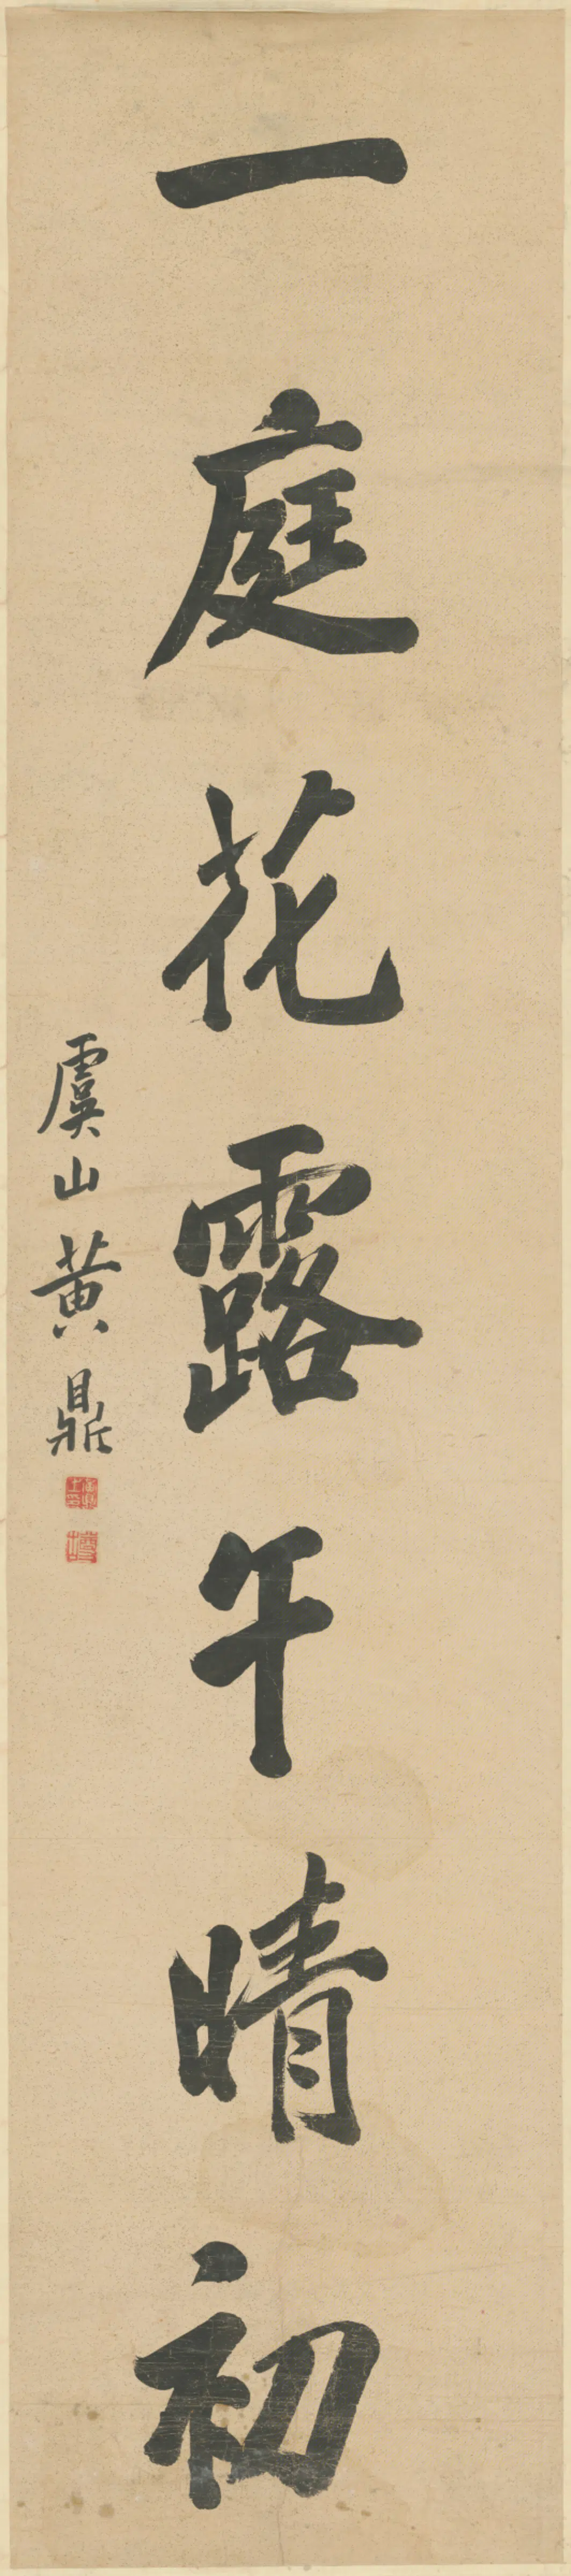 一庭花露午晴初
虞山黄鼎